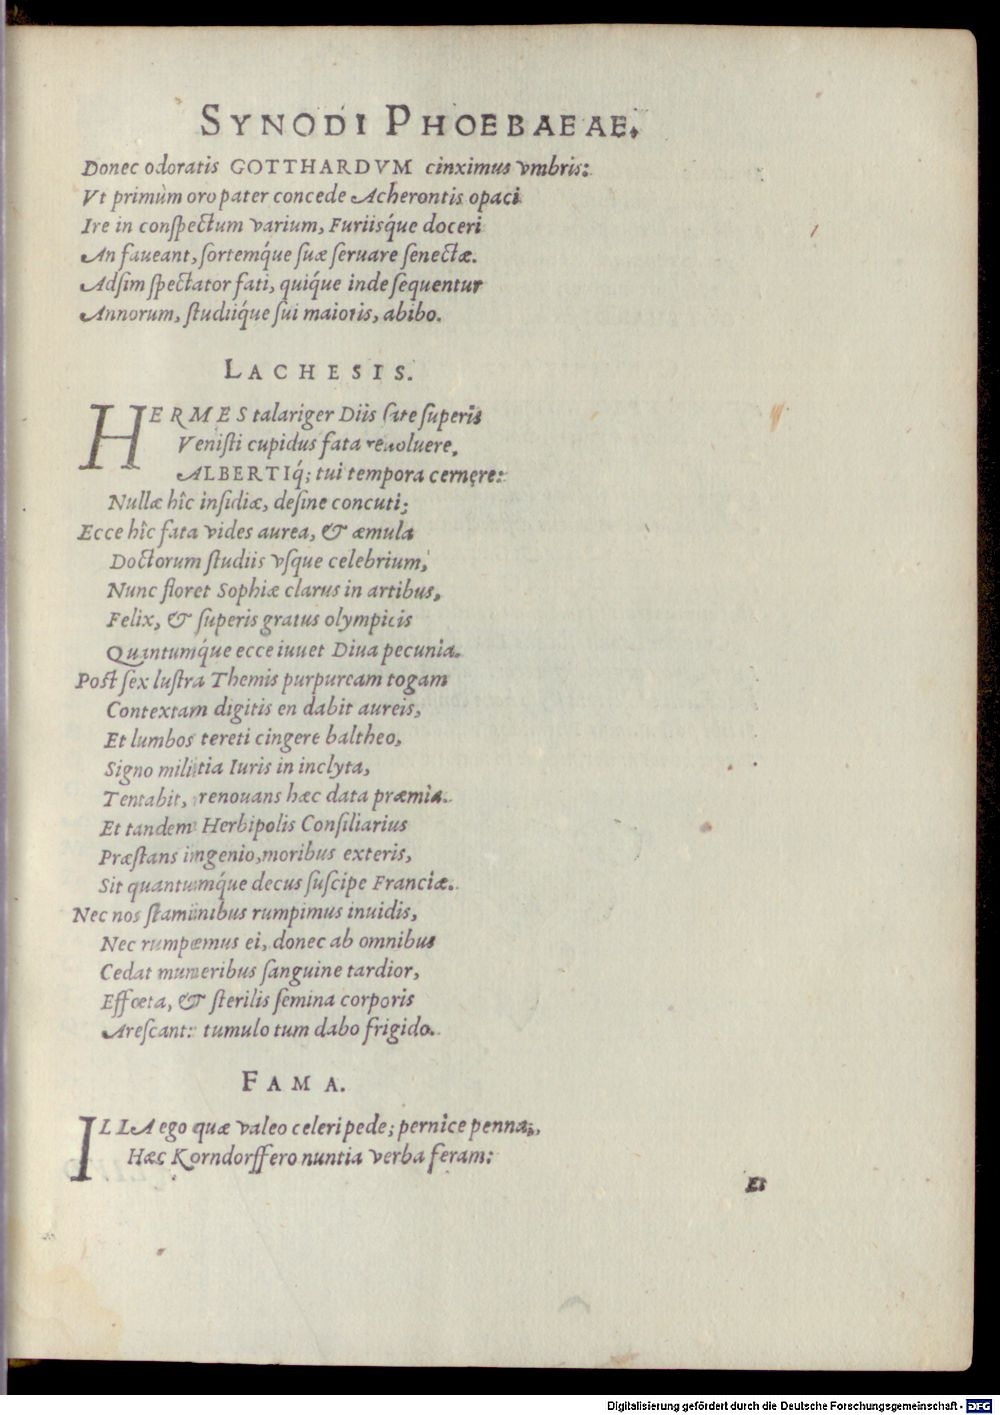 SYNODI PHOEBAEAE.
Donec odoratis GOTTHARDVM cinximus vmbris:
Vt primùm oro pater concede Acherontis opaci
Ire in conſpectum varium, Furiisq́ue doceri
An faueant, ſortemq́ue ſuæ ſeruare ſenectæ.
Adſim ſpectator fati, quiq́ue inde ſequentur
Annorum, ſtudiiq́ue ſui maioris, abibo.
LACHESIS.
HERMES talariger Diis ſate ſuperis
Veniſti cupidus fata reuoluere,
ALBERTIq́; tui tempora cernere:
Nullæ hîc inſidiæ, deſine concuti;
Ecce hîc fata vides aurea, & æmula
Doctorum ſtudiis vſque celebrium,
Nunc floret Sophiæ clarus in artibus,
Felix, & ſuperis gratus olympicis
Quantumq́ue ecce iuuet Diua pecunia.
Poſt ſex luſtra Themis purpuream togam
Contextam digitis en dabit aureis,
Et lumbos tereti cingere baltheo,
Signo militia Iuris in inclyta,
Tentabit, renouans hæc data præmia.
Et tandem Herbipolis Conſiliarius
Præſtans ingenio, moribus exteris,
Sit quantumq́ue decus ſuſcipe Franciæ.
Nec nos ſtaminibus rumpimus inuidis,
Nec rumpemus ei, donec ab omnibus
Cedat muneribus ſanguine tardior,
Effœta, & ſterilis ſemina corporis
Areſcant: tumulo tum dabo frigido.
FAMA.
ILLA ego quæ valeo celeri pede; pernice penna,
Hæc Korndorffero nuntia verba feram:
Et
Digitalisierung gefördert durch die Deutsche Forschungsgemeinschaft - DFG